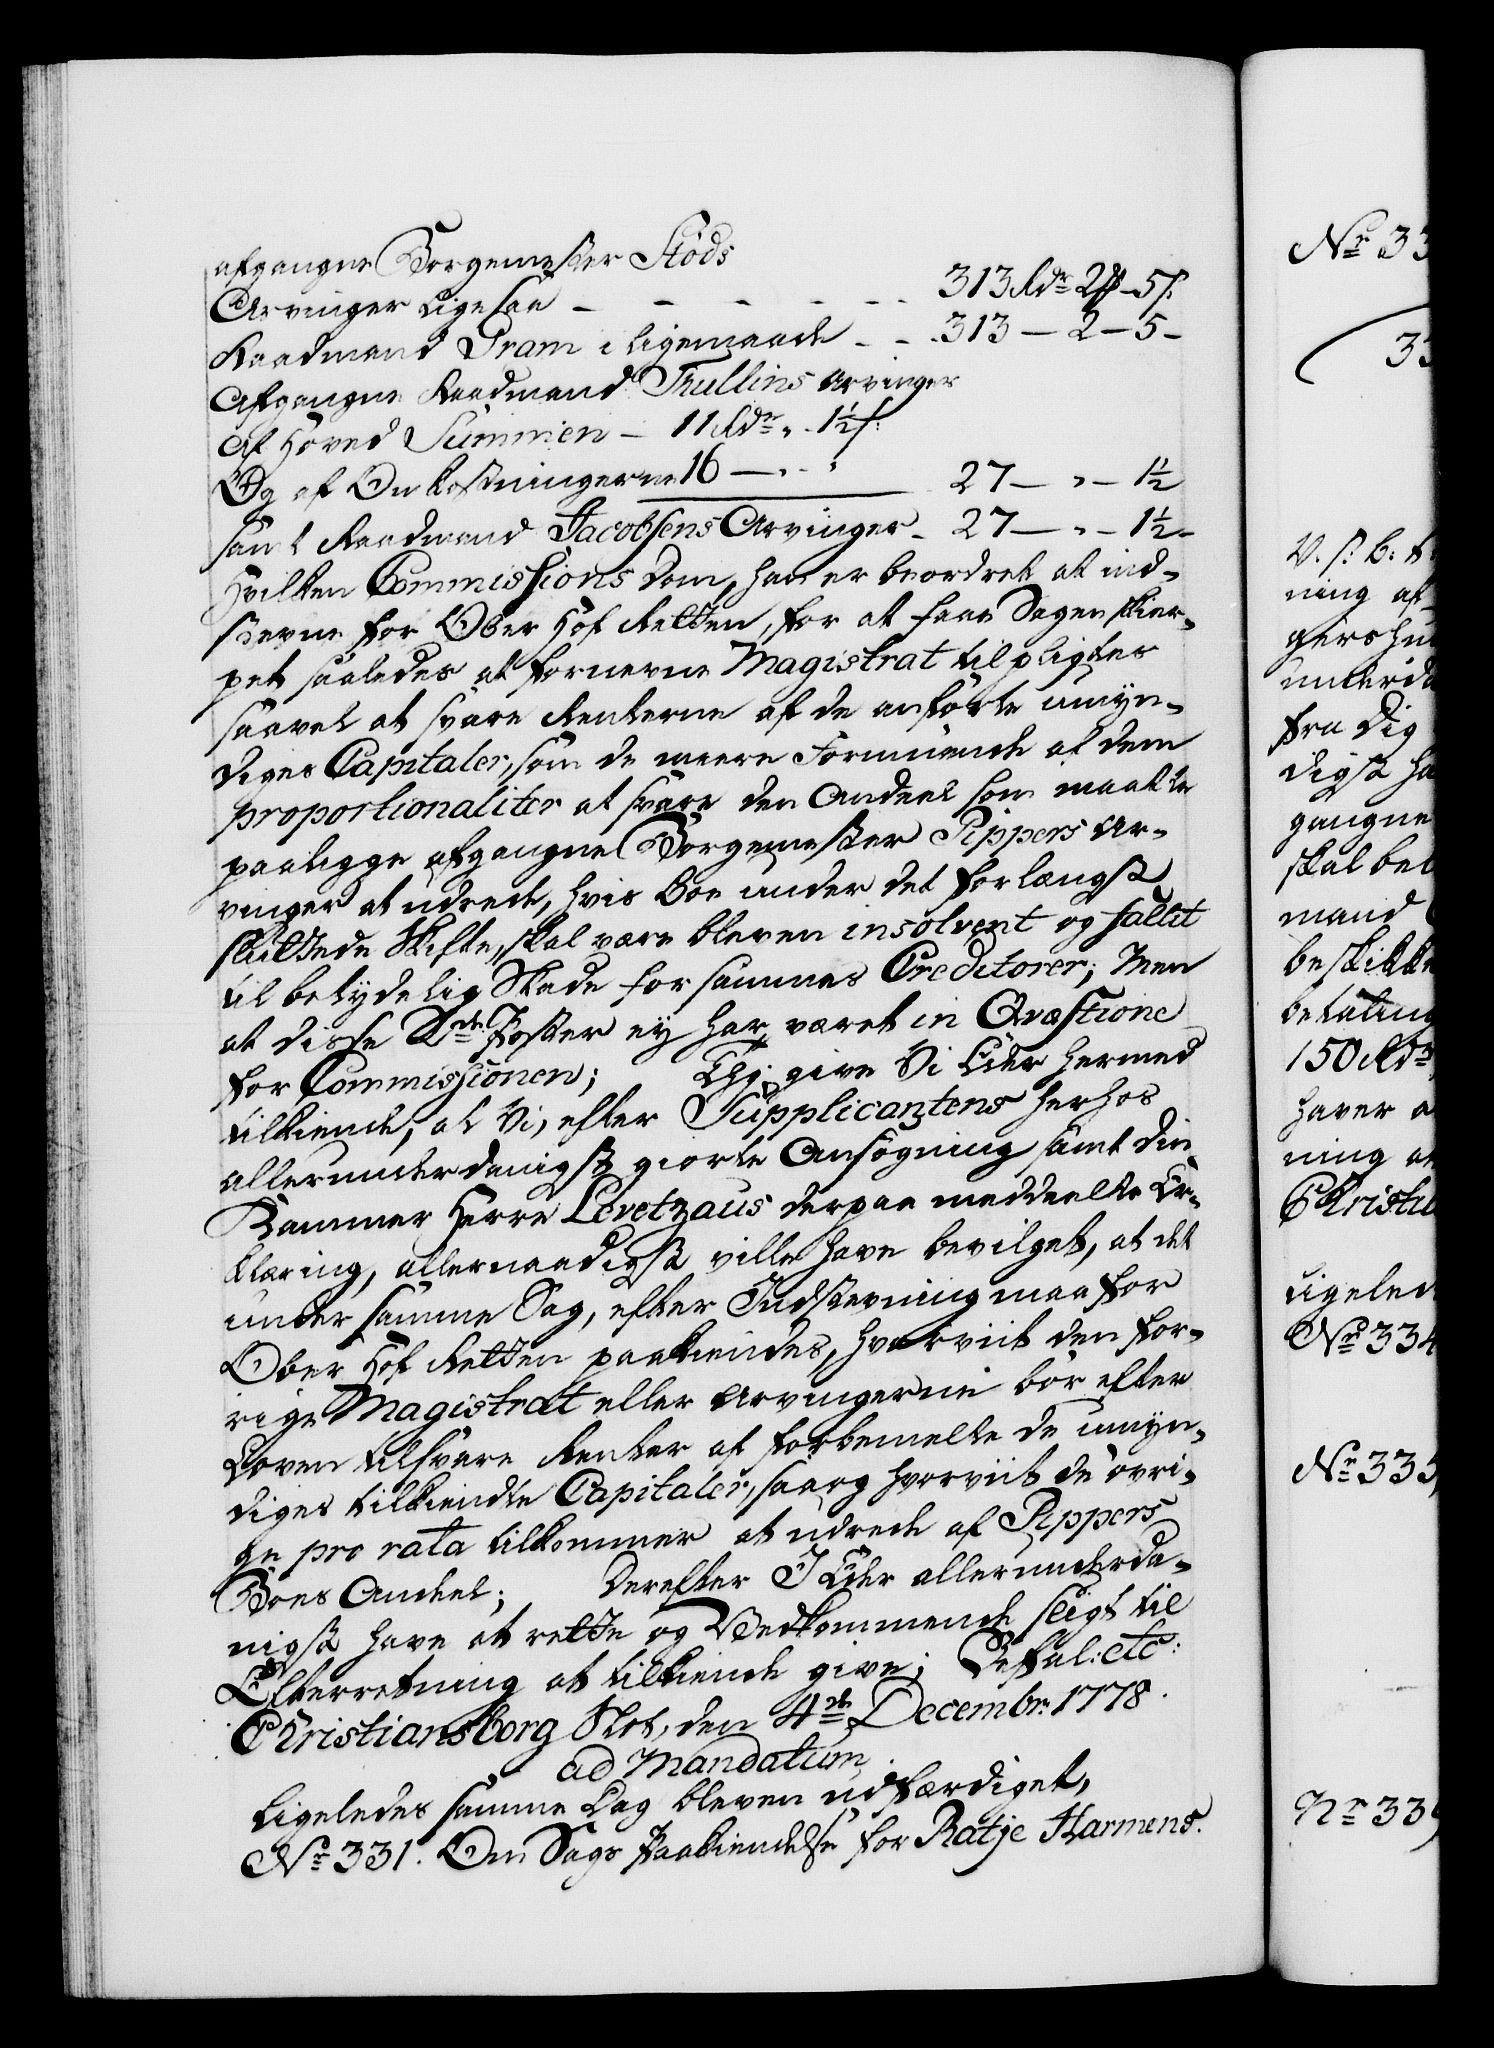 afgangne Borgemester Stöds
Arvinger ligesaa - - - - - - 313 Rdr 2 ℳ 5 s:
Raadmand Dram i ligemaade - - 313 - 2 - 5 -
Afgangne Raadmand Thullins Arvinger
Af Hoved Summen - 11 Rdr „ 1½ s:
Og af Omkostningerne 16 - „ - „ 27 - „ - 1½
samt Raadmand Jacobsens Arvinger - 27 - „ - 1½ -
Hvilken Commissions Dom, han er beordret at ind-
stevne for Ober Hof Retten, for at faae Sagen skier-
pet saaledes at fornevne Magistrat tilpligtes
saavel at svare Renterne af de anförte umyn-
diges Capitaler, som de meere Formuende af dem
proportionaliter at svare den Andeel som maatte
paaligge afgangne Borgemester Pippers Ar-
vinger at udrede, hvis Boe under det forlængst
sluttede Skifte, skal være bleven insolvent og fallit
til betydelig Skade for sammes Creditorer; Men
at disse 2de Poster ey har været in Qvæstione
for Commissionen; Thi give Vi Eder hermed
tilkiende, at Vi, efter Supplicantens herhos
allerunderdanigst giorte Ansögning samt Din
Kammer Herre Levetzaus derpaa meddeelte Er-
klæring, allernaadigst ville have bevilget, at det
under samme Sag, efter Indstevning maa for
Ober Hof Retten paakiendes, hvorviit den for-
rige Magistrat eller Arvingerne bör efter
Loven tilsvare Renter af forbemelte de umyn-
diges tilkiendte Capitaler, saa og hvorviit de övri-
ge pro rata tilkommer at udrede af Pippers
Boes Andeel; Derefter I Eder allerunderda-
nigst have at rette og Vedkommende sligt til
Efterretning at tilkiende give; Befal: etc:
Christiansborg Slot, den 4de Decembr: 1778.
ad Mandatum
Ligeledes samme Dag bleven udfærdiget,
No 331. Om Sags Paakiendelse for Ratje Harmens.
Nr 33
33
V. s: b: t
ning af
gershu
underda
fra Dig
digst ha
gangne
skal bel
mand
beskikke
betaling
150 Rdr
haver a
ning at
Christia
Ligeled
No 334
Nr 335
Nr 339